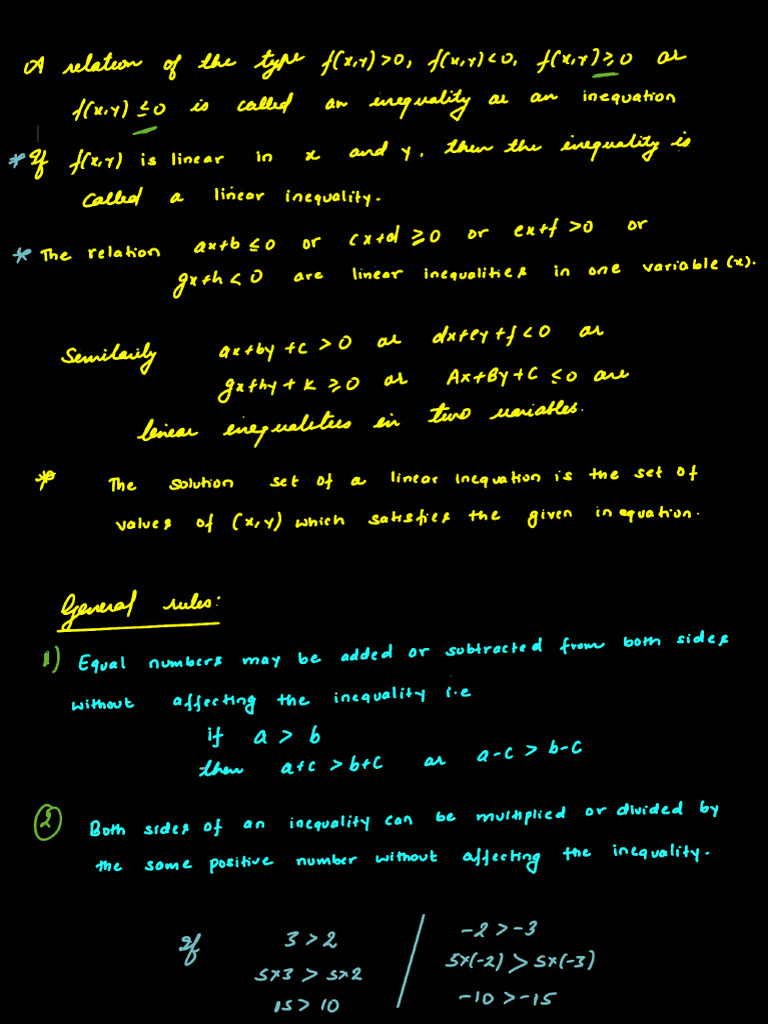 A relation of the type f(x,y)>0, f(x,y)<0, f(x,y)≥0 or
f(x,y) ≤0 is called an inequality or an inequation
* If f(x,y) is linear in x and y, then the inequality is
called a linear inequality.
* The relation ax+b ≤0 or cx+d ≥0 or ex+f >0 or
gx+h < 0 are linear inequalities in one variable (x).
Similarily ax+by +c > 0 or dx+ey+f<0 or
gx+hy + k ≥0 or Ax+By+C ≤0 are
linear inequalities in two variables.
* The solution set of a linear inequation is the set of
values of (x,y) which satisfies the given inequation.
General rules:
1) Equal numbers may be added or subtracted from both sides
without affecting the inequality i.e
if a > b
then a+c > b+c or a-c > b-c
2 Both sides of an inequality can be multiplied or divided by
the same positive number without affecting the inequality.
If 3 > 2 / -2 > -3
5x3 > 5x2 5x(-2) > 5x(-3)
15 > 10 -10 > -15